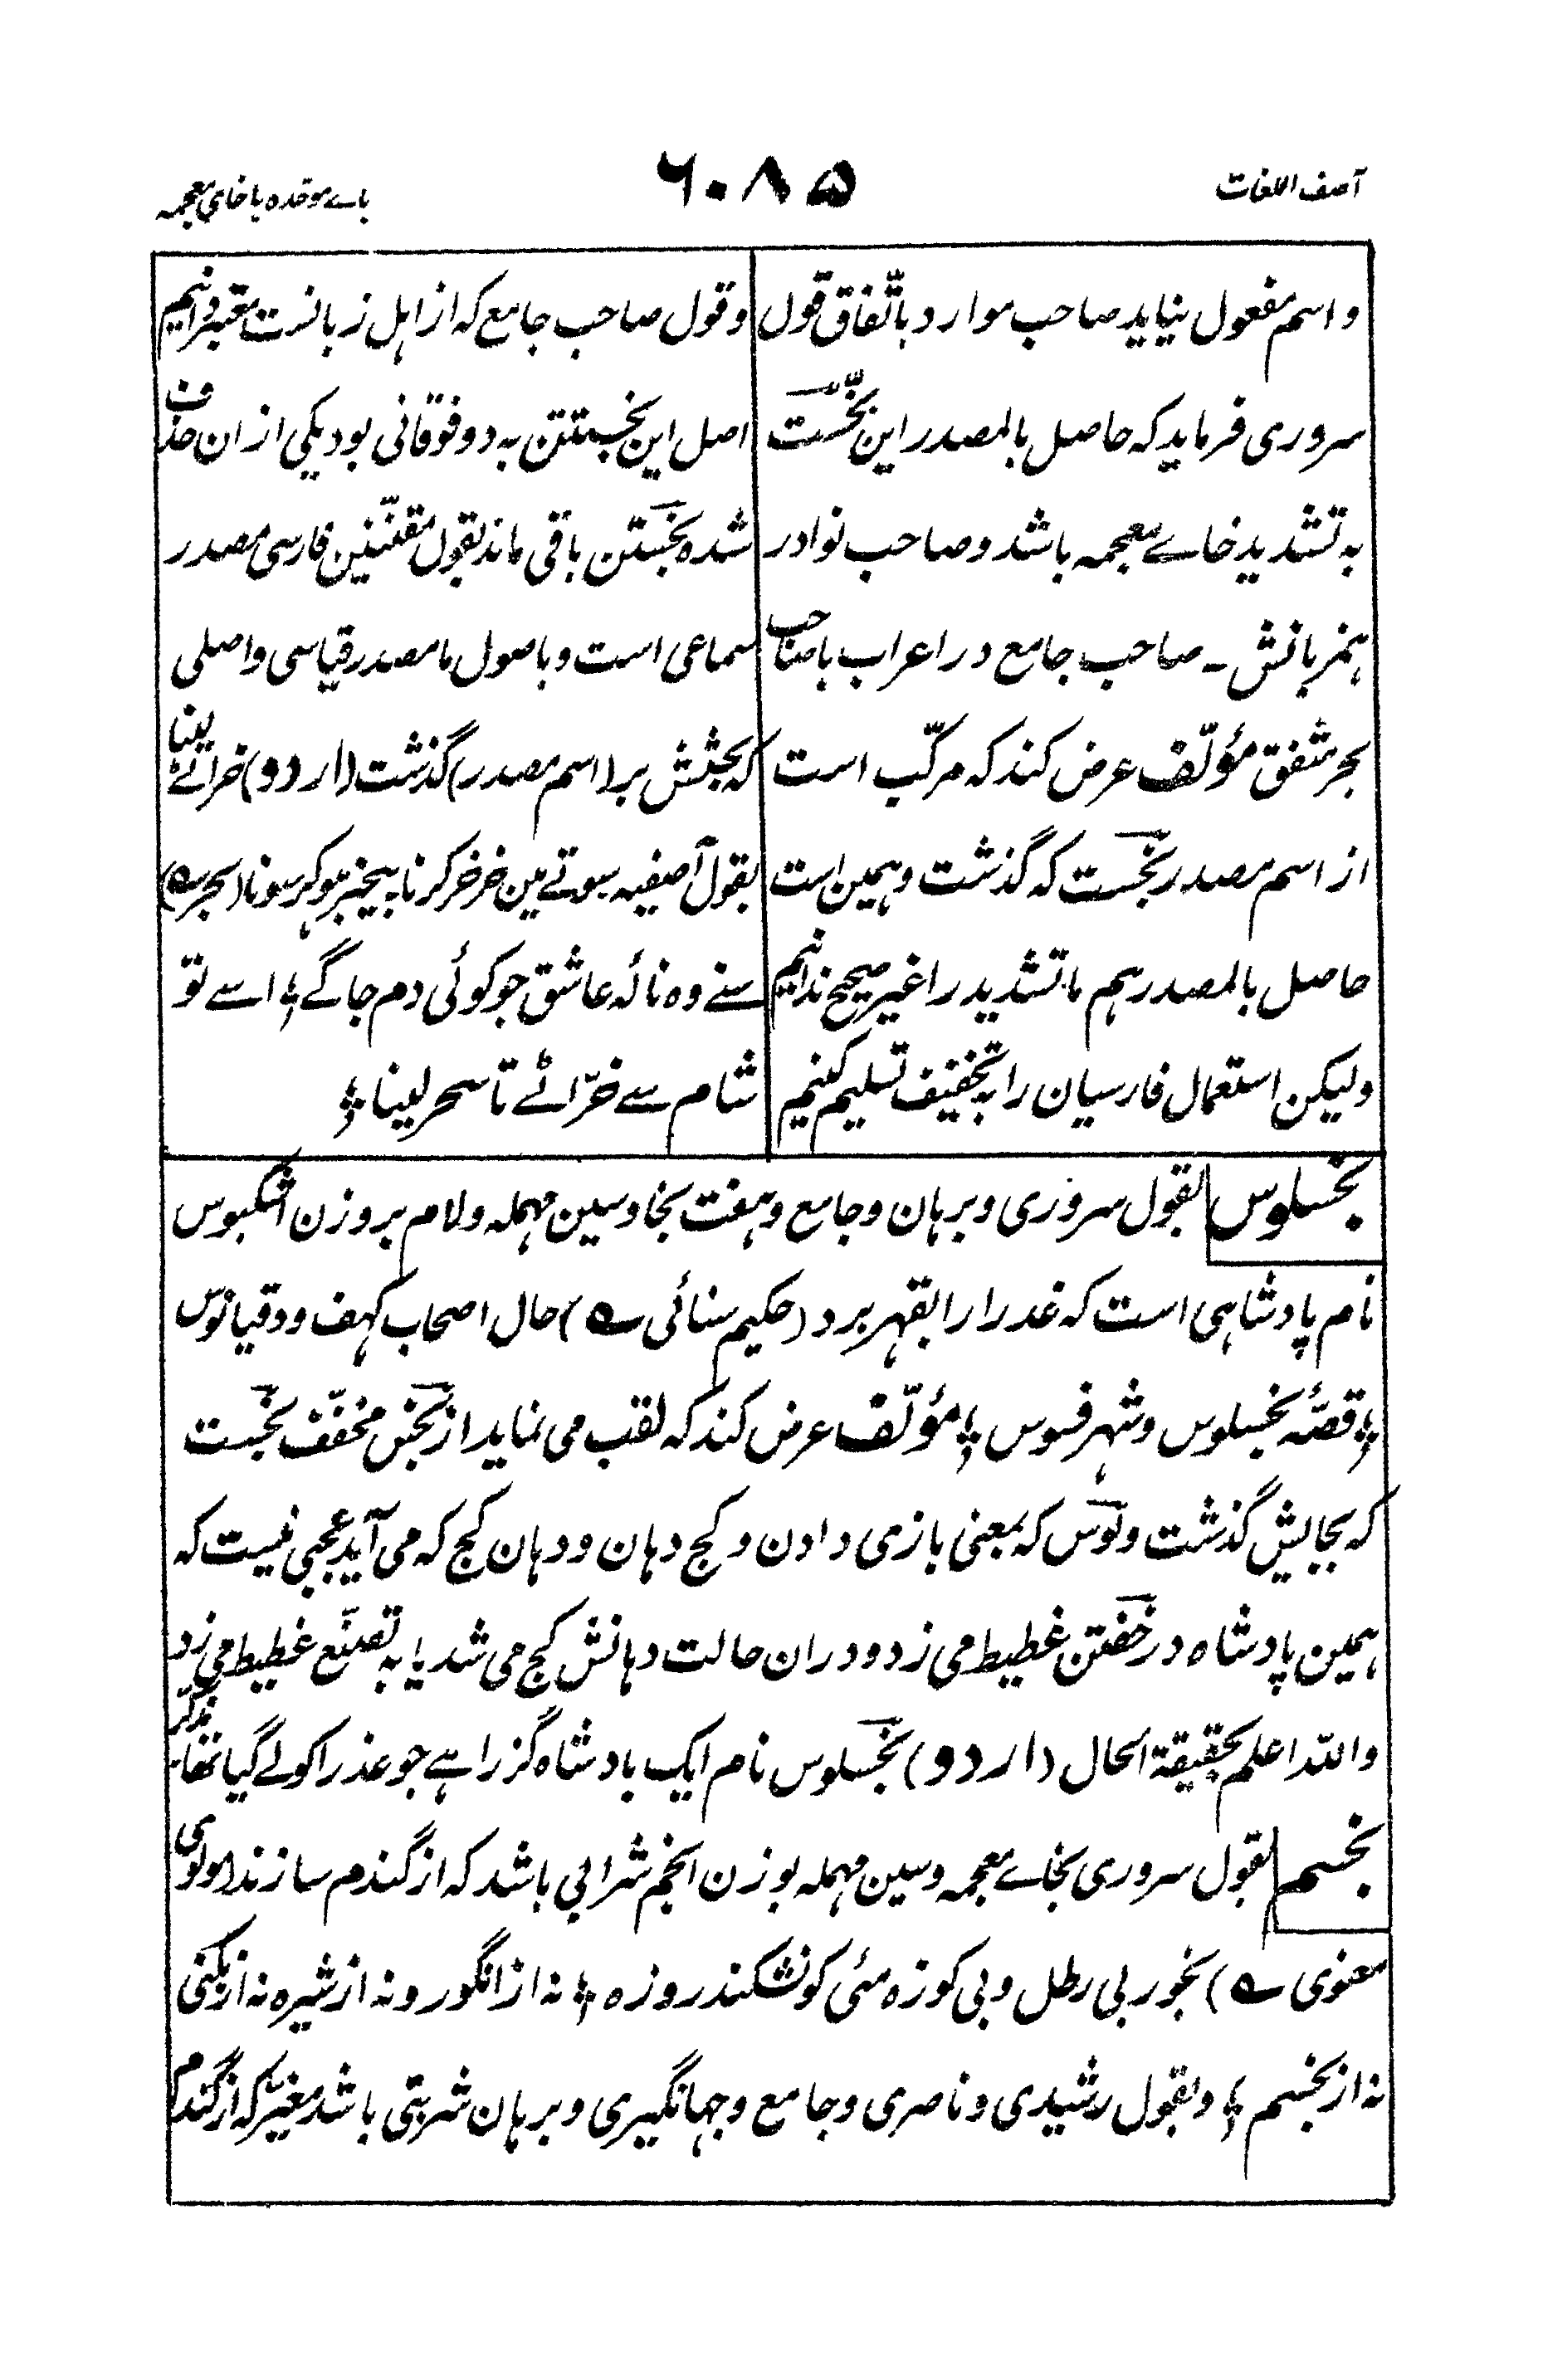 آصف اللغات
۶۰۸۵
باے موحّده با خاي معجمه
و اسم مفعول نیاید صاحب موارد باتّفاق قول
سروری فرماید که حاصل بالمصدر این بخّست
به تشدید خاے معجمه باشد و صاحب نوادر
همزبانش ـ صاحب جامع در اعراب باصاحب
بحر متفق مؤلّف عرض کند که مرکّب است
از اسم مصدر بخست که گذشت و همین است
حاصل بالمصدر هم ما تشدید را غیر صحیح ندانیم
ولیکن استعمال فارسیان را به تخفیف تسلیم کنیم
و قول صاحب جامع که از اهل زبانست معتبر دانیم
اصل این بخستتن به دو فوقانی بود یکی از ان حذف
شده بخستن باقی ماند بقول مقنّنین فارسی مصدر
سماعی است و باصول ما مصدر قیاسی و اصلی
که بحثش بر (اسم مصدر) گذشت (اردو) خرّاٹے لینا
بقول آصفیه سوتے مین خرخر کرنا بیخبر ہوکر سونا (بحر ؎)
سنے وه نالۂ عاشق جو کوئی دم جاگے ؛ اسے تو
شام سے خرّاٹے تا سحر لینا ؛
بخسلوس بقول سروری و برهان و جامع و هفت بخا و سین مهمله و لام بر وزن اشکبوس
نام پادشاهی است که عذرا را بقهر برد (حکیم سنائی ؎) حال اصحاب کهف و دقیانوس
؛ قصّۂ بخسلوس و شهر فسوس ؛ مؤلّف عرض کند که لقب می نماید از بخس مخفّف بخست
که بجایش گذشت و لوس که بمعنی بازی دادن و کج دهان و دهان کج که می آید عجبی نیست که
همین پادشاه در خفتن غطیط می زد و دران حالت دهانش کج می شد یا به تصنّع غطیط می زد
والله اعلم بحقیقة الحال (اردو) بخسلوس نام ایک بادشاه گزرا ہے جو عذرا کو لے گیا تھا ـ مذکر
بخسم بقول سروری بخاے معجمه و سین مهمله بوزن انجم شرابی باشد که از گندم سازند (مولوی
معنوی ؎) بخور بی رطل و بی کوزه مئی کو نشکند روزه ؛ نه از انگور و نه از شیره نه از بکنی
نه از بخسم ؛ و بقول رشیدی و ناصری و جامع و جهانگیری و برهان شربتی باشد مغیّر که از گندم